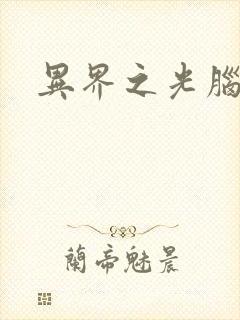 異界之光腦
蘭帝魅晨